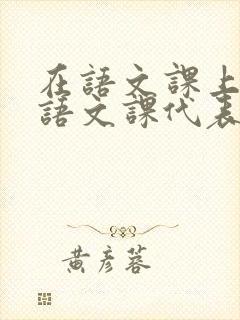 在語文課上
語文課代表
黄彦蓉